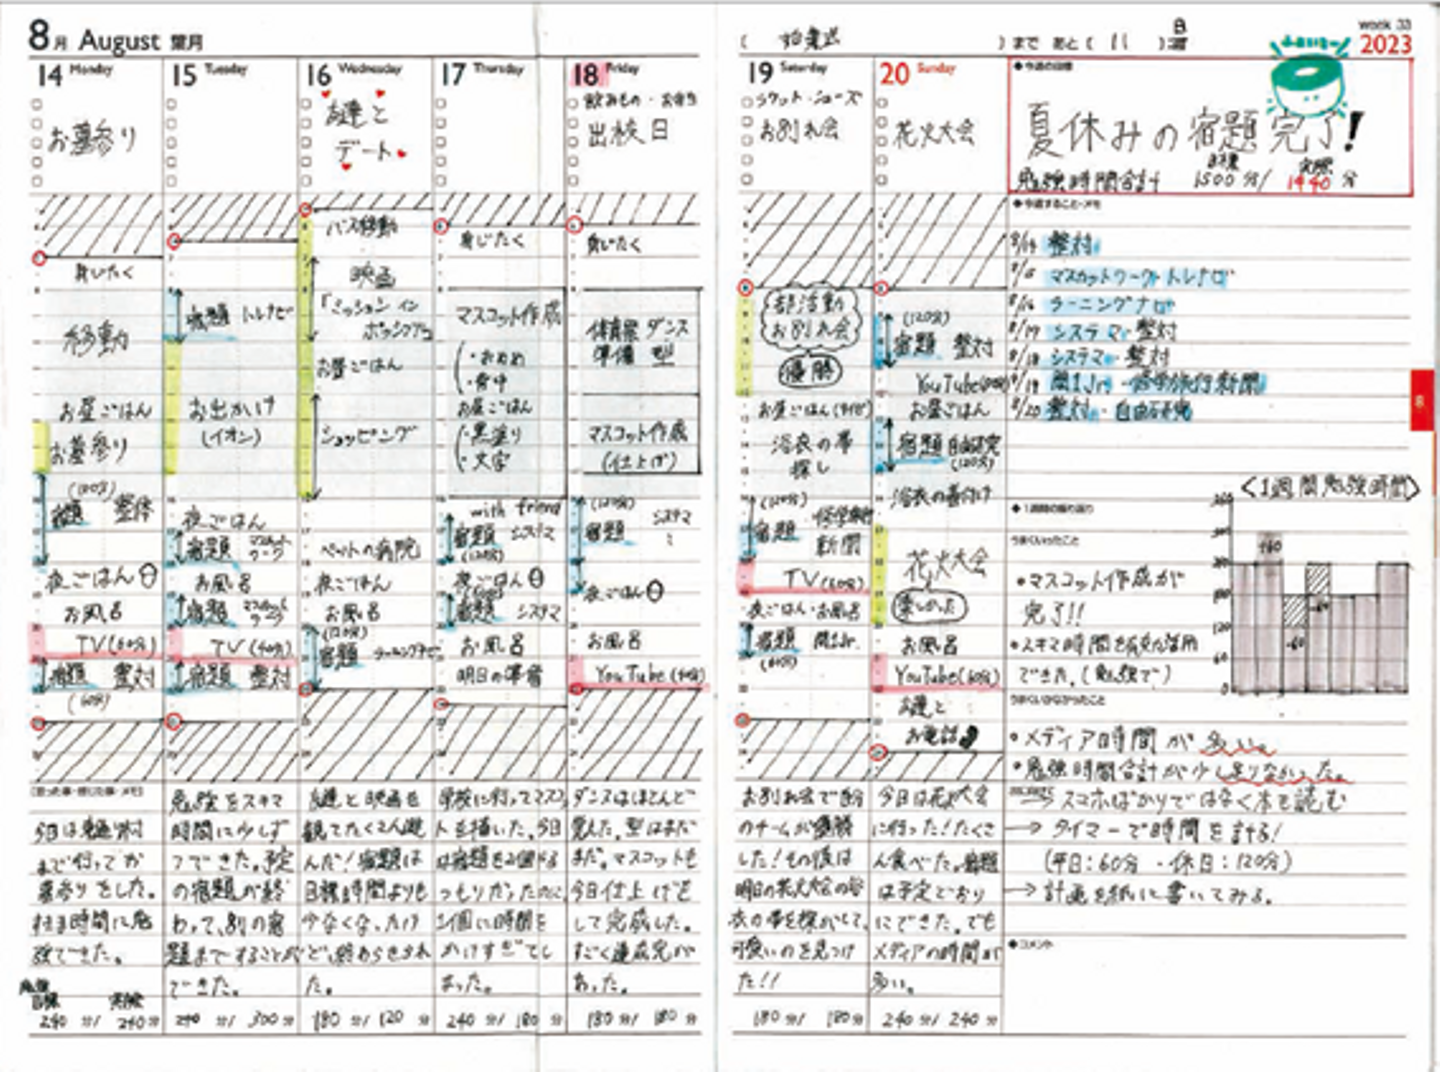 8月 August 葉月
14 Monday
お墓参り
身じたく
移動
お昼ごはん
お墓参り
(120分)
宿題 整体
夜ごはん
お風呂
TV(60分)
宿題 整対
(60分)
まで行ってお
墓参りをした。
強できた。
目標 実際
240分/ 240分
15 Tuesday
宿題 トレナビ
お出かけ
(イオン)
夜ごはん
宿題 マスカットワーク
お風呂
宿題
TV(60分)
宿題 整対
勉強をスキマ
時間に少しず
つできた。予定
の宿題が終
わって、別の宿
題まですることが
できた。
240分/ 300分
16 Wednesday
友達と
デート
バス移動
映画
「ミッションイン
ポッシブル」
お昼ごはん
ショッピング
ペットの病院
夜ごはん
お風呂
(120分)
宿題 ラーニングナビ
友達と映画を
観てたくさん遊
んだ!宿題は
目標時間よりも
少なくなったけ
ど、終わらせられ
た。
180分/ 120分
17 Thursday
身じたく
マスコット作成
お昼ごはん
・黒塗り
・文字
with friend
宿題 システマ
(120分)
夜ごはん
宿題 システマ
お風呂
明日の準備
学校に行ってマスコッ
トを描いた。今日
は宿題を2個やる
つもりだったのに、
1個に時間を
かけすぎてし
まった。
240分/ 180分
18 Friday
飲みもの・お弁当
出校日
身じたく
体育祭 ダンス
準備 型
マスコット作成
(仕上げ)
(120分)
宿題 システマ
夜ごはん
お風呂
YouTube
ダンスはほとんど
覚えた。型はまだ
まだ。マスコットも
今日仕上げを
して完成した。
すごく達成完が
あった。
180分/ 180分
( 始業式 )まで あと( 11 )日
19 Saturday
ラケット・シューズ
お別れ会
部活動
お別れ会
優勝
お昼ごはん
浴衣の帯
探し
(120分)
宿題 修学旅行
新聞
TV(60分)
夜ごはん・お風呂
宿題 関1Jr.
(60分)
お別れ会で自分
のチームが優勝
した!その後は
明日の花火大会の浴
衣の帯を探がして、
可愛いのを見つけ
た!!
180分/ 180分
20 Sunday
花火大会
(120分)
宿題 整対
YouTube
お昼ごはん
宿題 自由研究
(120分)
浴衣の着付け
花火大会
楽しかった
お風呂
YouTube(60分)
友達と
お電話
今日は花火大会
に行った!たくさ
ん食べた。宿題
は予定どおり
にできた。でも
メディアの時間が
多い。
240分/ 240分
week 33
2023
●今週の目標
夏休みの宿題完了!
目標 実際
勉強時間合計 1500分/ 1440分
●今週すること・メモ
8/14 整対
8/15 マスカットワーク トレナビ
8/16 ラーニングナビ
8/17 システマ・整対
8/18 システマ・整対
8/19 関1Jr.・修学旅行新聞
8/20 整対・自由研究
●1週間の振り返り
うまくいったこと
●マスコット作成が
完了!!
●スキマ時間を有効活用
できた。(勉強で)
<1週間勉強時間>
うまくいかなかったこと
●メディア時間が多い。
●勉強時間合計が少し足りなかった。
スマホばかりではなく本を読む
→タイマーで時間を計る!
(平日:60分・休日:120分)
→計画を紙に書いてみる。
●コメント
8